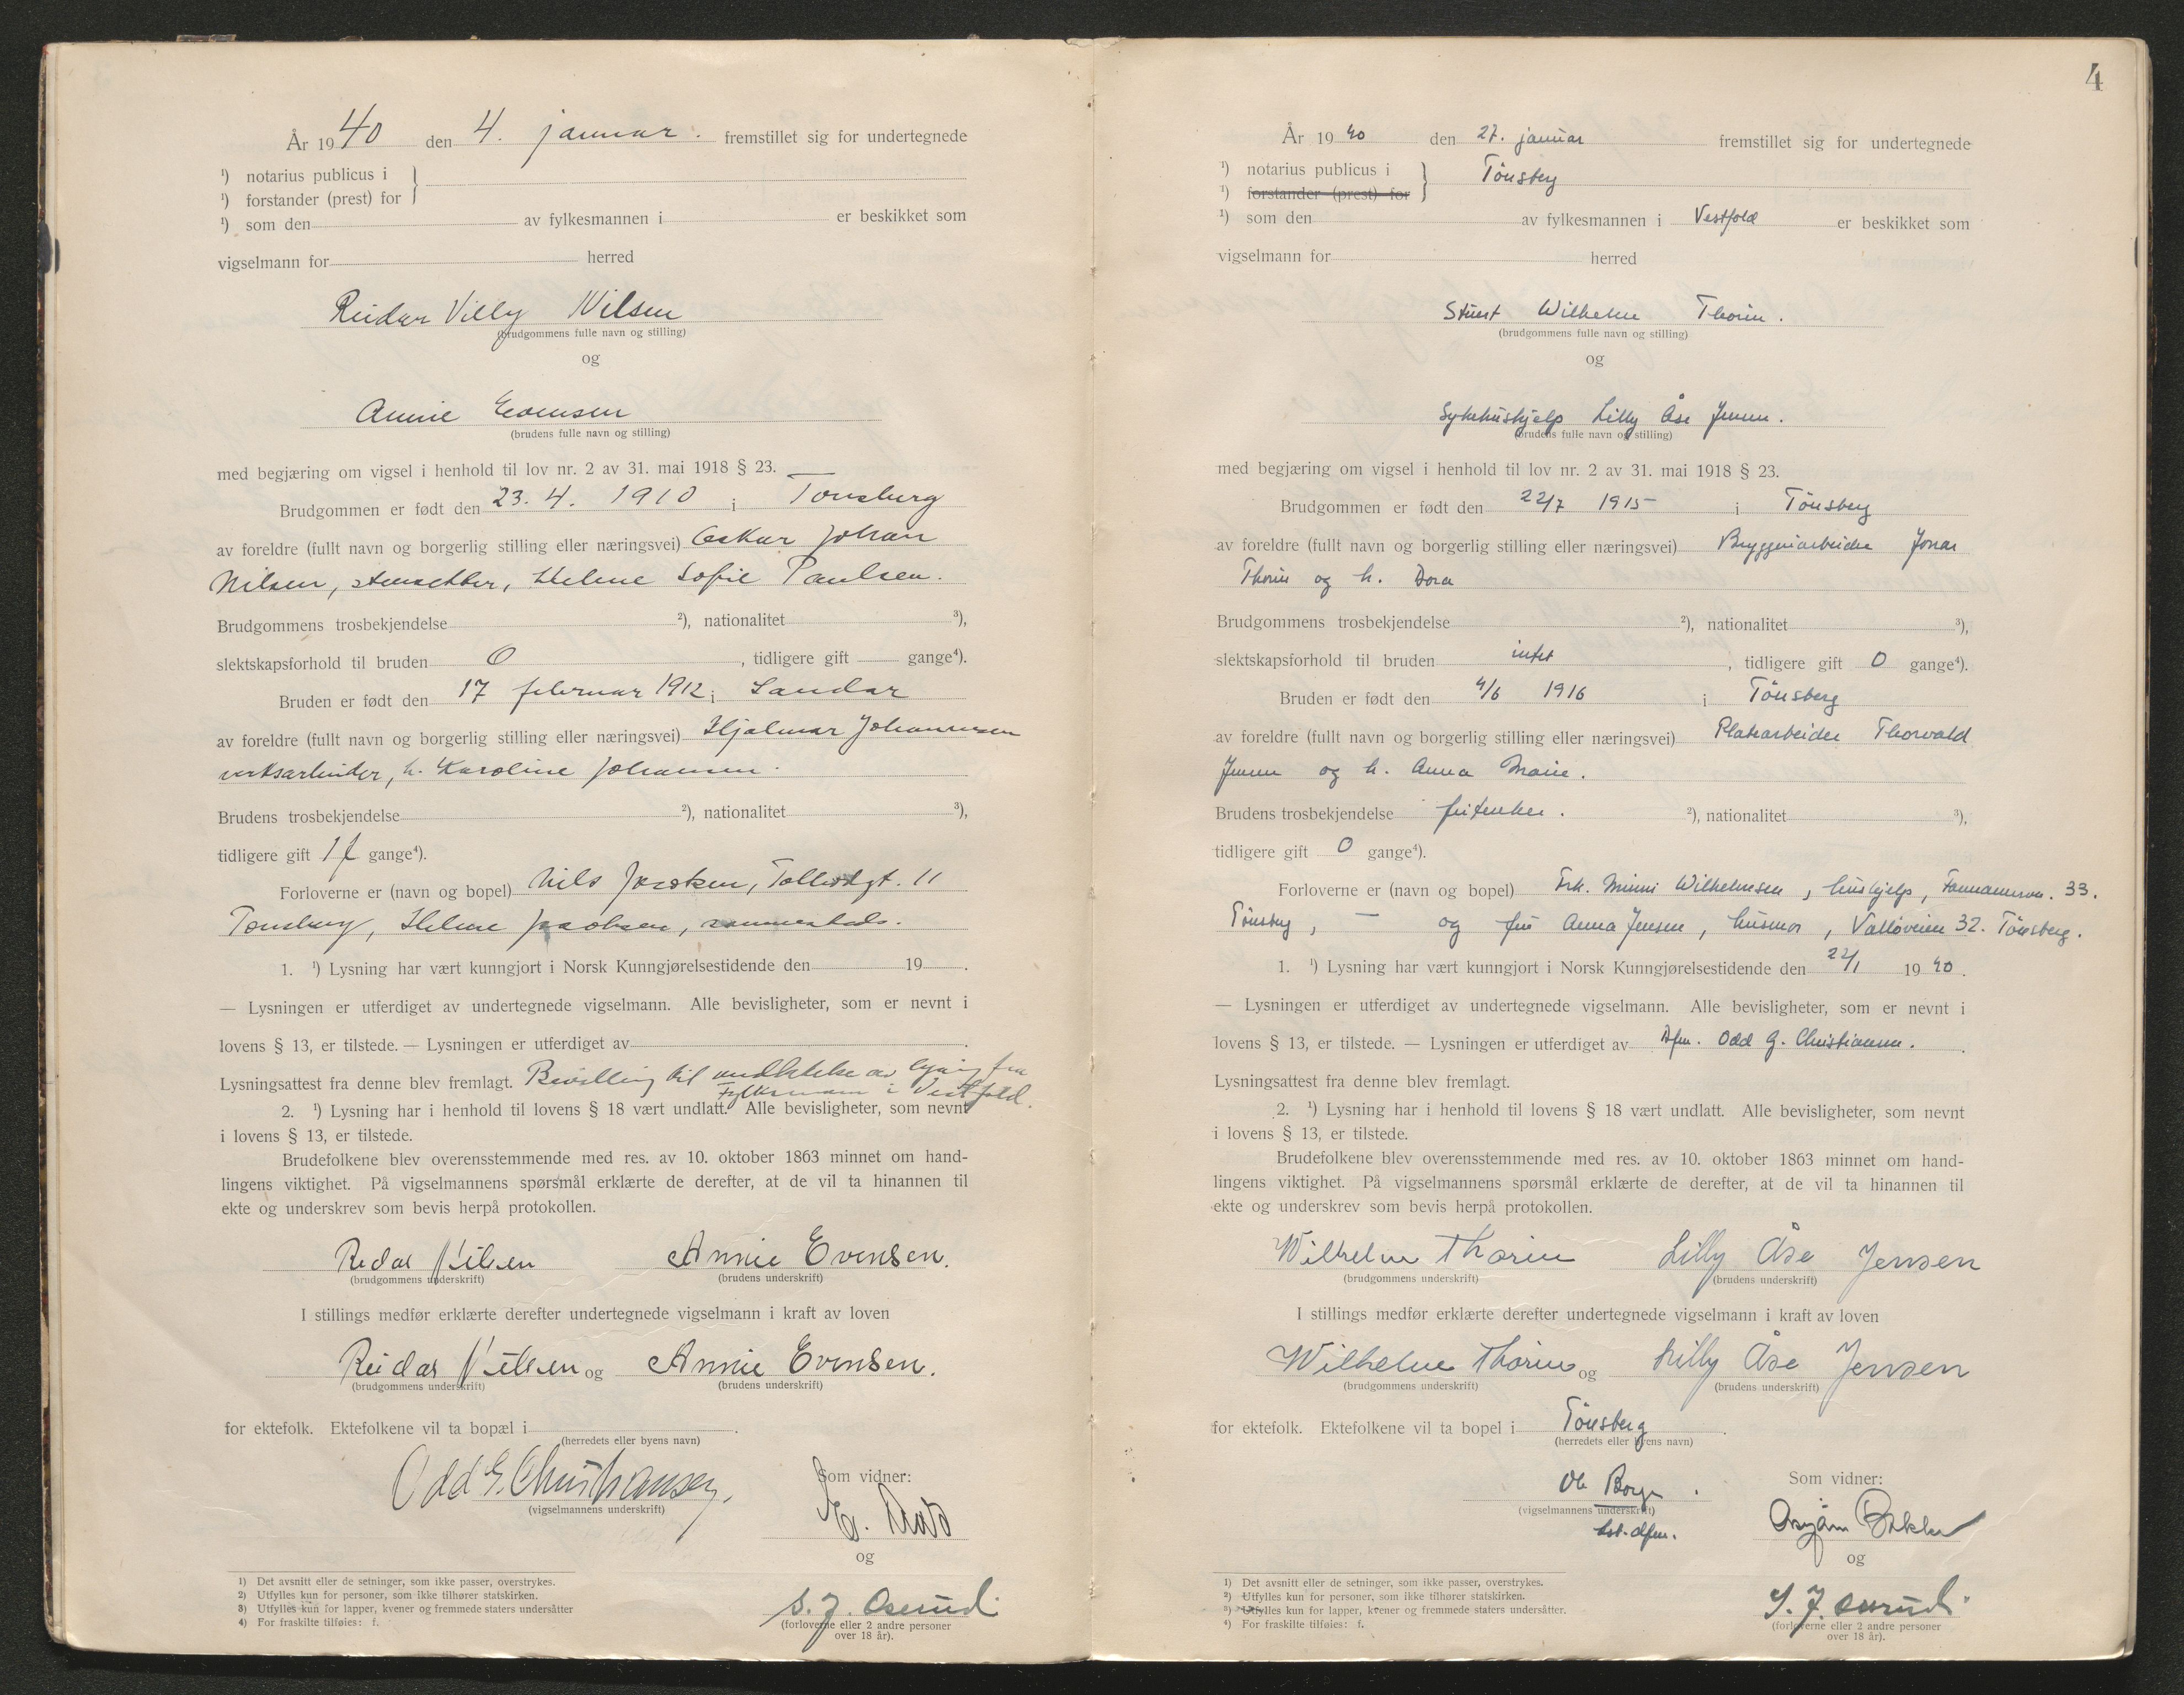 År 1940 den 4. januar. fremstillet sig for undertegnede
¹) notarius publicus i
¹) forstander (prest) for
¹) som den av fylkesmannen i er beskikket som
vigselmann for herred
Reidar Villy Nilsen
(brudgommens fulle navn og stilling)
og
Annie Evensen
(brudens fulle navn og stilling)
med begjæring om vigsel i henhold til lov nr. 2 av 31. mai 1918 § 23.
Brudgommen er født den 23. 4. 1910 i Tønsberg
av foreldre (fullt navn og borgerlig stilling eller næringsvei) Oskar Johan
Nilsen, stensetter, Helene Sofie Paulsen.
Brudgommens trosbekjendelse ²), nationalitet ³),
slektskapsforhold til bruden 0, tidligere gift gange⁴).
Bruden er født den 17 februar 1912 i Sandar
av foreldre (fullt navn og borgerlig stilling eller næringsvei) Hjalmar Johannesen
verksarbeider, h. Karoline Johansen.
Brudens trosbekjendelse ²), nationalitet ³),
tidligere gift 1 f gange⁴).
Forloverne er (navn og bopel) Nils Jacobsen, Tollbodgt. 11
Tønsberg, Helene Jacobsen, sammesteds.
1. ¹) Lysning har vært kunngjort i Norsk Kunngjørelsestidende den 19 .
— Lysningen er utferdiget av undertegnede vigselmann. Alle bevisligheter, som er nevnt i
lovens § 13, er tilstede. — Lysningen er utferdiget av .
Lysningsattest fra denne blev fremlagt. Bevilling til undlatelse av lysning fra
Fylkesmann i Vestfold.
2. ¹) Lysning har i henhold til lovens § 18 vært undlatt. Alle bevisligheter, som nevnt
i lovens § 13, er tilstede.
Brudefolkene blev overensstemmende med res. av 10. oktober 1863 minnet om hand-
lingens viktighet. På vigselmannens spørsmål erklærte de derefter, at de vil ta hinannen til
ekte og underskrev som bevis herpå protokollen.
Reidar Nilsen Annie Evensen.
(brudgommens underskrift) (brudens underskrift)
I stillings medfør erklærte derefter undertegnede vigselmann i kraft av loven
Reidar Nilsen og Annie Evensen.
(brudgommens underskrift) (brudens underskrift)
for ektefolk. Ektefolkene vil ta bopæl i .
(herredets eller byens navn)
Odd G. Christiansen.
(vigselmannens underskrift)
Som vidner:
E.
og
S. J. Oserud
(forloverne eller 2 andre personer
over 18 år).
1) Det avsnitt eller de setninger, som ikke passer, overstrykes.
2) Utfylles kun for personer, som ikke tilhører statskirken.
3) Utfylles kun for lapper, kvener og fremmede staters undersåtter
4) For fraskilte tilføies: f.
4
År 1940 den 27. januar fremstillet sig for undertegnede
¹) notarius publicus i Tønsberg
¹) forstander (prest) for
¹) som den av fylkesmannen i Vestfold er beskikket som
vigselmann for herred
Wilhelm Thorin.
(brudgommens fulle navn og stilling)
og
Sykehushjelp Lilly Åse Jensen.
(brudens fulle navn og stilling)
med begjæring om vigsel i henhold til lov nr. 2 av 31. mai 1918 § 23.
Brudgommen er født den 22/7 1915 i Tønsberg
av foreldre (fullt navn og borgerlig stilling eller næringsvei) Bryggeriarbeider Jonas
Thorin og h. Dora
Brudgommens trosbekjendelse ²), nationalitet ³),
slektskapsforhold til bruden intet, tidligere gift 0 gange⁴).
Bruden er født den 4/6 1916 i Tønsberg
av foreldre (fullt navn og borgerlig stilling eller næringsvei) Platearbeider Thorvald
Jensen og h. Anna Marie.
Brudens trosbekjendelse fritenker. ²), nationalitet ³),
tidligere gift 0 gange⁴).
Forloverne er (navn og bopel) Frk. Minni Wilhelmsen, hushjelp, 33.
Tønsberg, — og fru Anna Jensen, husmor, Valløveien 32. Tønsberg.
1. ¹) Lysning har vært kunngjort i Norsk Kunngjørelsestidende den 22/1 1940.
— Lysningen er utferdiget av undertegnede vigselmann. Alle bevisligheter, som er nevnt i
lovens § 13, er tilstede. — Lysningen er utferdiget av Dfm. Odd G. Christiansen.
Lysningsattest fra denne blev fremlagt.
2. ¹) Lysning har i henhold til lovens § 18 vært undlatt. Alle bevisligheter, som nevnt
i lovens § 13, er tilstede.
Brudefolkene blev overensstemmende med res. av 10. oktober 1863 minnet om hand-
lingens viktighet. På vigselmannens spørsmål erklærte de derefter, at de vil ta hinannen til
ekte og underskrev som bevis herpå protokollen.
Wilhelm Thorin Lilly Åse Jensen
(brudgommens underskrift) (brudens underskrift)
I stillings medfør erklærte derefter undertegnede vigselmann i kraft av loven
Wilhelm Thorin og Lilly Åse Jensen
(brudgommens underskrift) (brudens underskrift)
for ektefolk. Ektefolkene vil ta bopel i Tønsberg.
(herredets eller byens navn)
Ole Borge.
(vigselmannens underskrift)
Som vidner:
og
S. J. Oserud
(forloverne eller 2 andre personer
over 18 år).
1) Det avsnitt eller de setninger, som ikke passer, overstrykes.
2) Utfylles kun for personer, som ikke tilhører statskirken.
3) Utfylles kun for lapper, kvener og fremmede staters undersåtter.
4) For fraskilte tilføies: f.